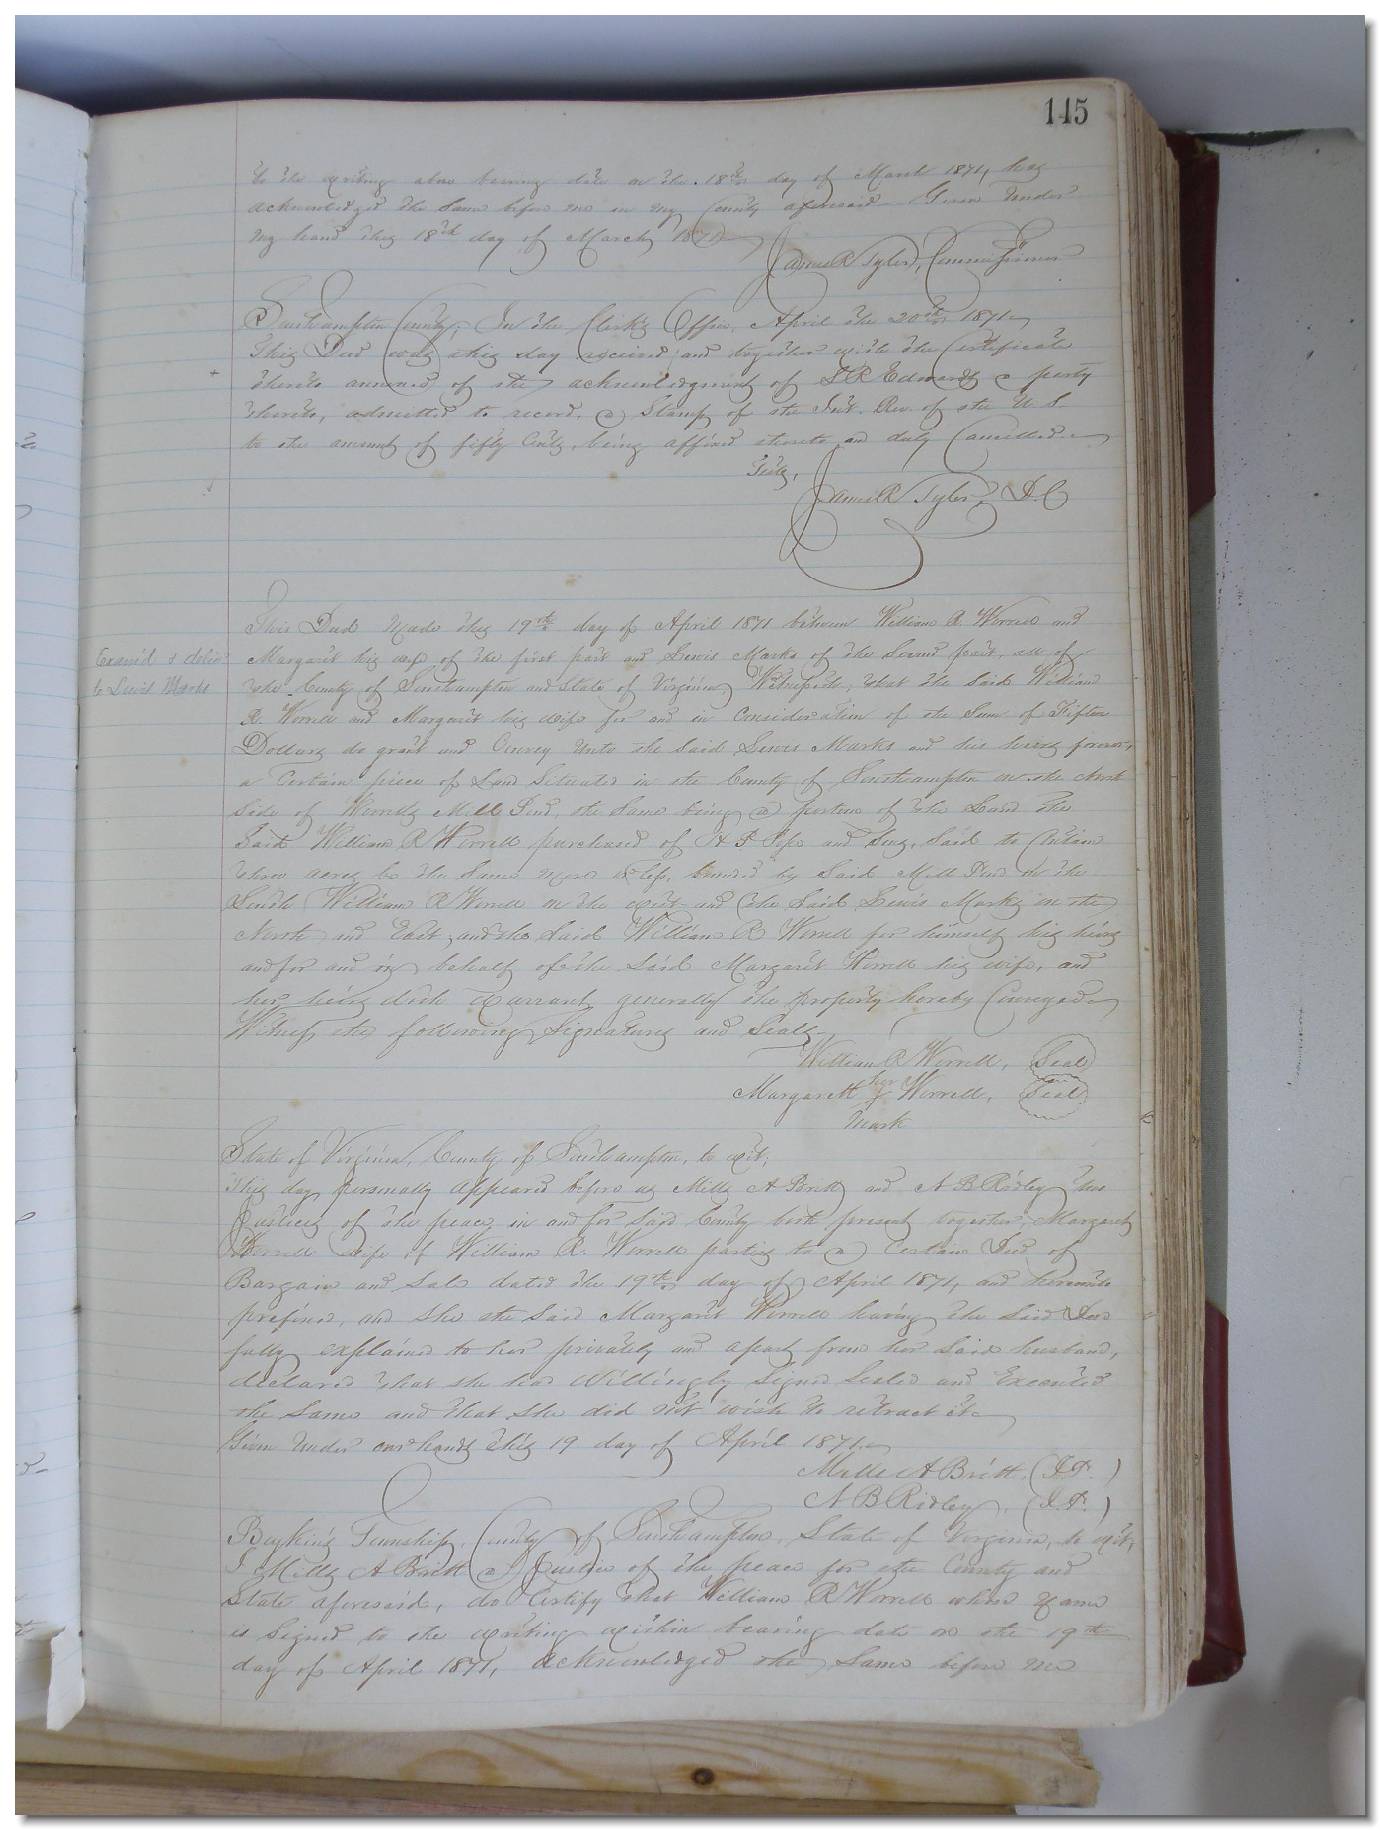 145
to the writing above bearing date on the 18th day of March 1871, has
acknowledged the same before me in my County aforesaid Given under
my hand this 18th day of March 1871
James R Tyler, Commissioner
Southampton County; In the Clerk's Office, April the 20th 1871.
This Deed was this day received and together with the Certificate
thereto annexed of the acknowledgment of Edwards a party
thereto, admitted to record, a Stamp of the Int. Rev. of the U. S.
to the amount of fifty Cents, being affixed thereto and duly Cancelled.
Teste,
James R Tyler, D.C
This Deed Made this 19th day of April 1871 between William R. Worrell and
Examd & deliv
Margaret his wife of the first part and Lewis Marks of the Second part, all of
to Lewis Marks
the County of Southampton and State of Virginia, Witnesseth, that the said William
R. Worrell and Margaret his wife for and in Consideration of the Sum of Fifteen
Dollars do grant and Convey unto the said Lewis Marks and his heirs forever,
a Certain piece of Land Situated in the County of Southampton on the North
side of Worrells Mill Pond, the same being a portion of the Land the
Said William R Worrell purchased of Pope and Said to Contain
three acres be the same more or less, bounded by Said Mill Pond on the
South William R Worrell on the West and the Said Lewis Marks on the
North and East, and the Said William R Worrell for himself his heirs
and for and in behalf of the Said Margaret Worrell his wife, and
her heirs doth warrant generally the property hereby Conveyed
Witness the following Signatures and Seals
William R Worrell, Seal
Margarett her X Worrell, Seal
mark
State of Virginia, County of Southampton, to wit;
This day personally appeared before us Mills A Britt and N B Ridley two
Justices of the peace in and for Said County both present together, Margaret
Worrell wife of William R. Worrell parties to a Certain Deed of
Bargain and Sale dated the 19th day of April 1871, and hereunto
prefixed, and she the Said Margaret Worrell having the Said Deed
fully explained to her privately and apart from her Said husband,
declared that she had Willingly signed Sealed and Executed
the Same and that she did not wish to retract it
Given under our hands this 19 day of April 1871.
Mills A Britt. (J.P.)
N B Ridley, (J.P.)
Boykins Township, County of Southampton, State of Virginia, to wit,
I Mills A Britt a Justice of the peace for the County and
State aforesaid, do Certify that William R Worrell whose name
is Signed to the writing within bearing date on the 19th
day of April 1871, acknowledged the Same before me